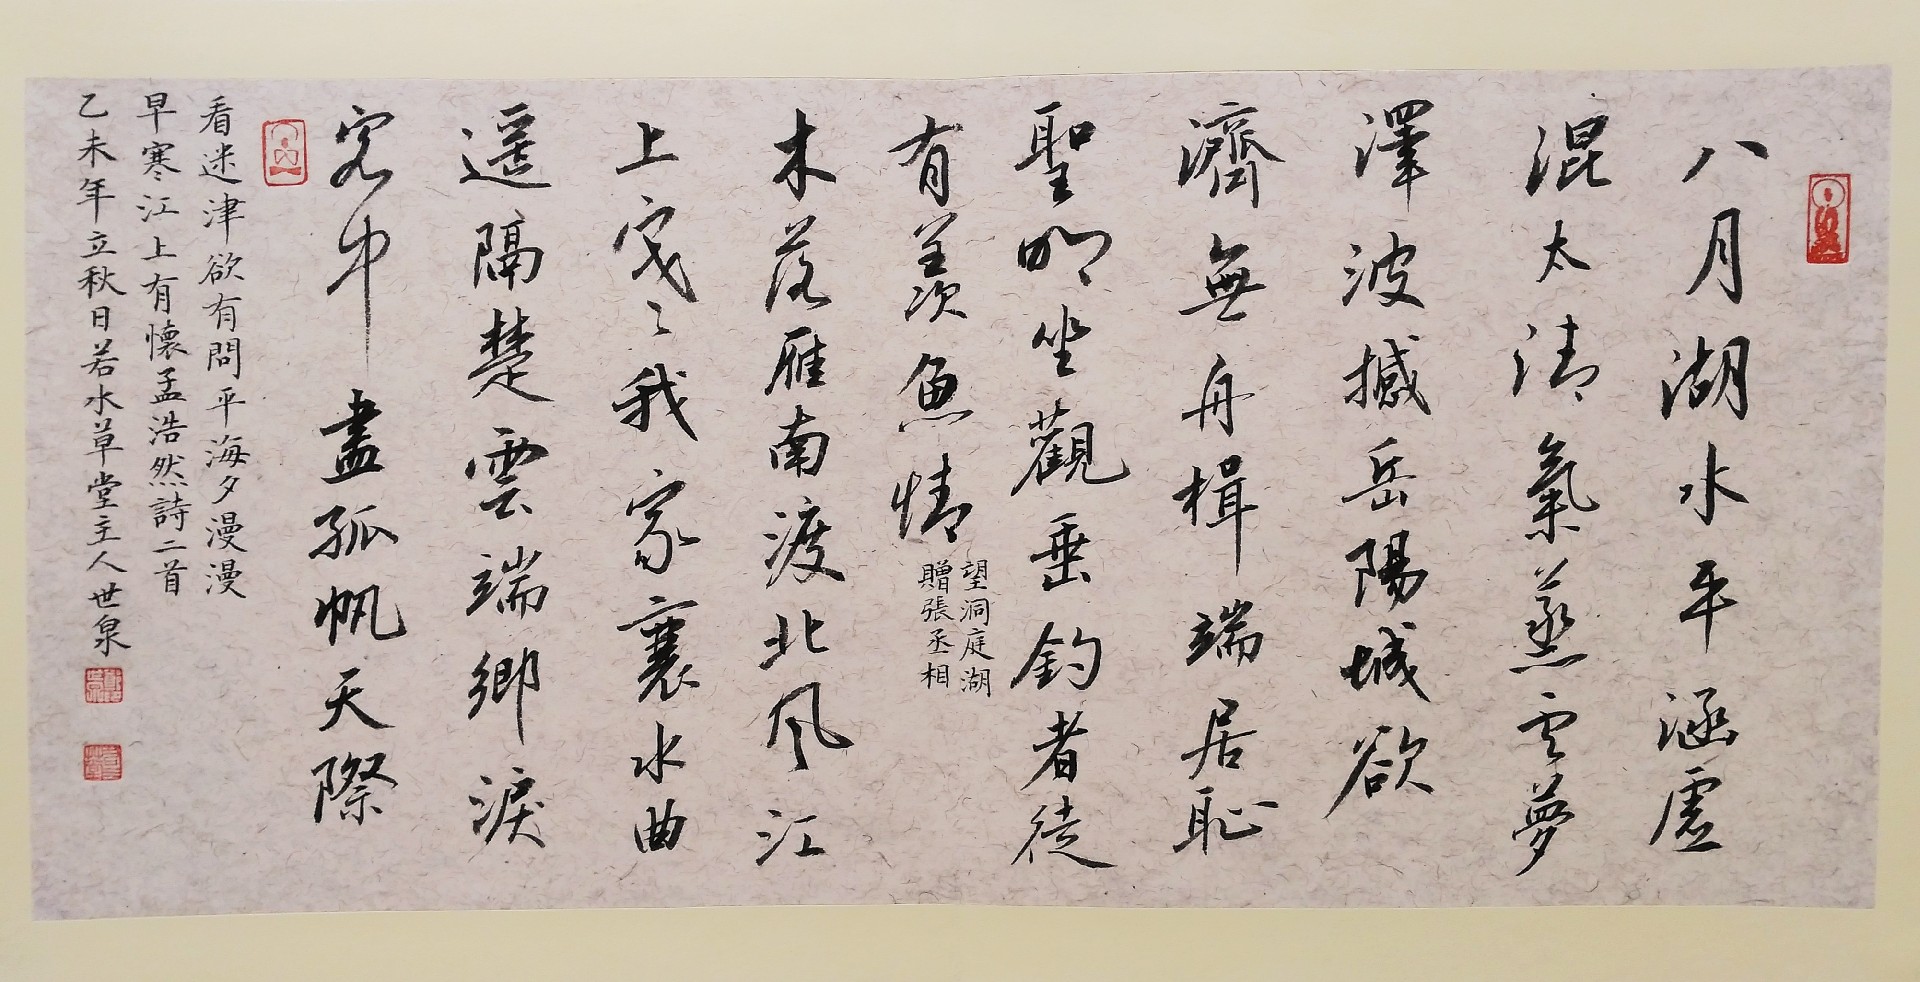 八月湖水平涵虛
混太清氣蒸云夢
澤波撼岳陽城欲
濟無舟楫端居恥
聖明坐觀垂釣者徒
有羨魚情
望洞庭湖
贈張丞相
木落雁南渡北風江
上寒〻我家襄水曲
遥隔楚雲端鄉淚
客中盡孤帆天際
看迷津欲有問平海夕漫漫
早寒江上有懷孟浩然詩二首
乙未年立秋日若水草堂主人世泉